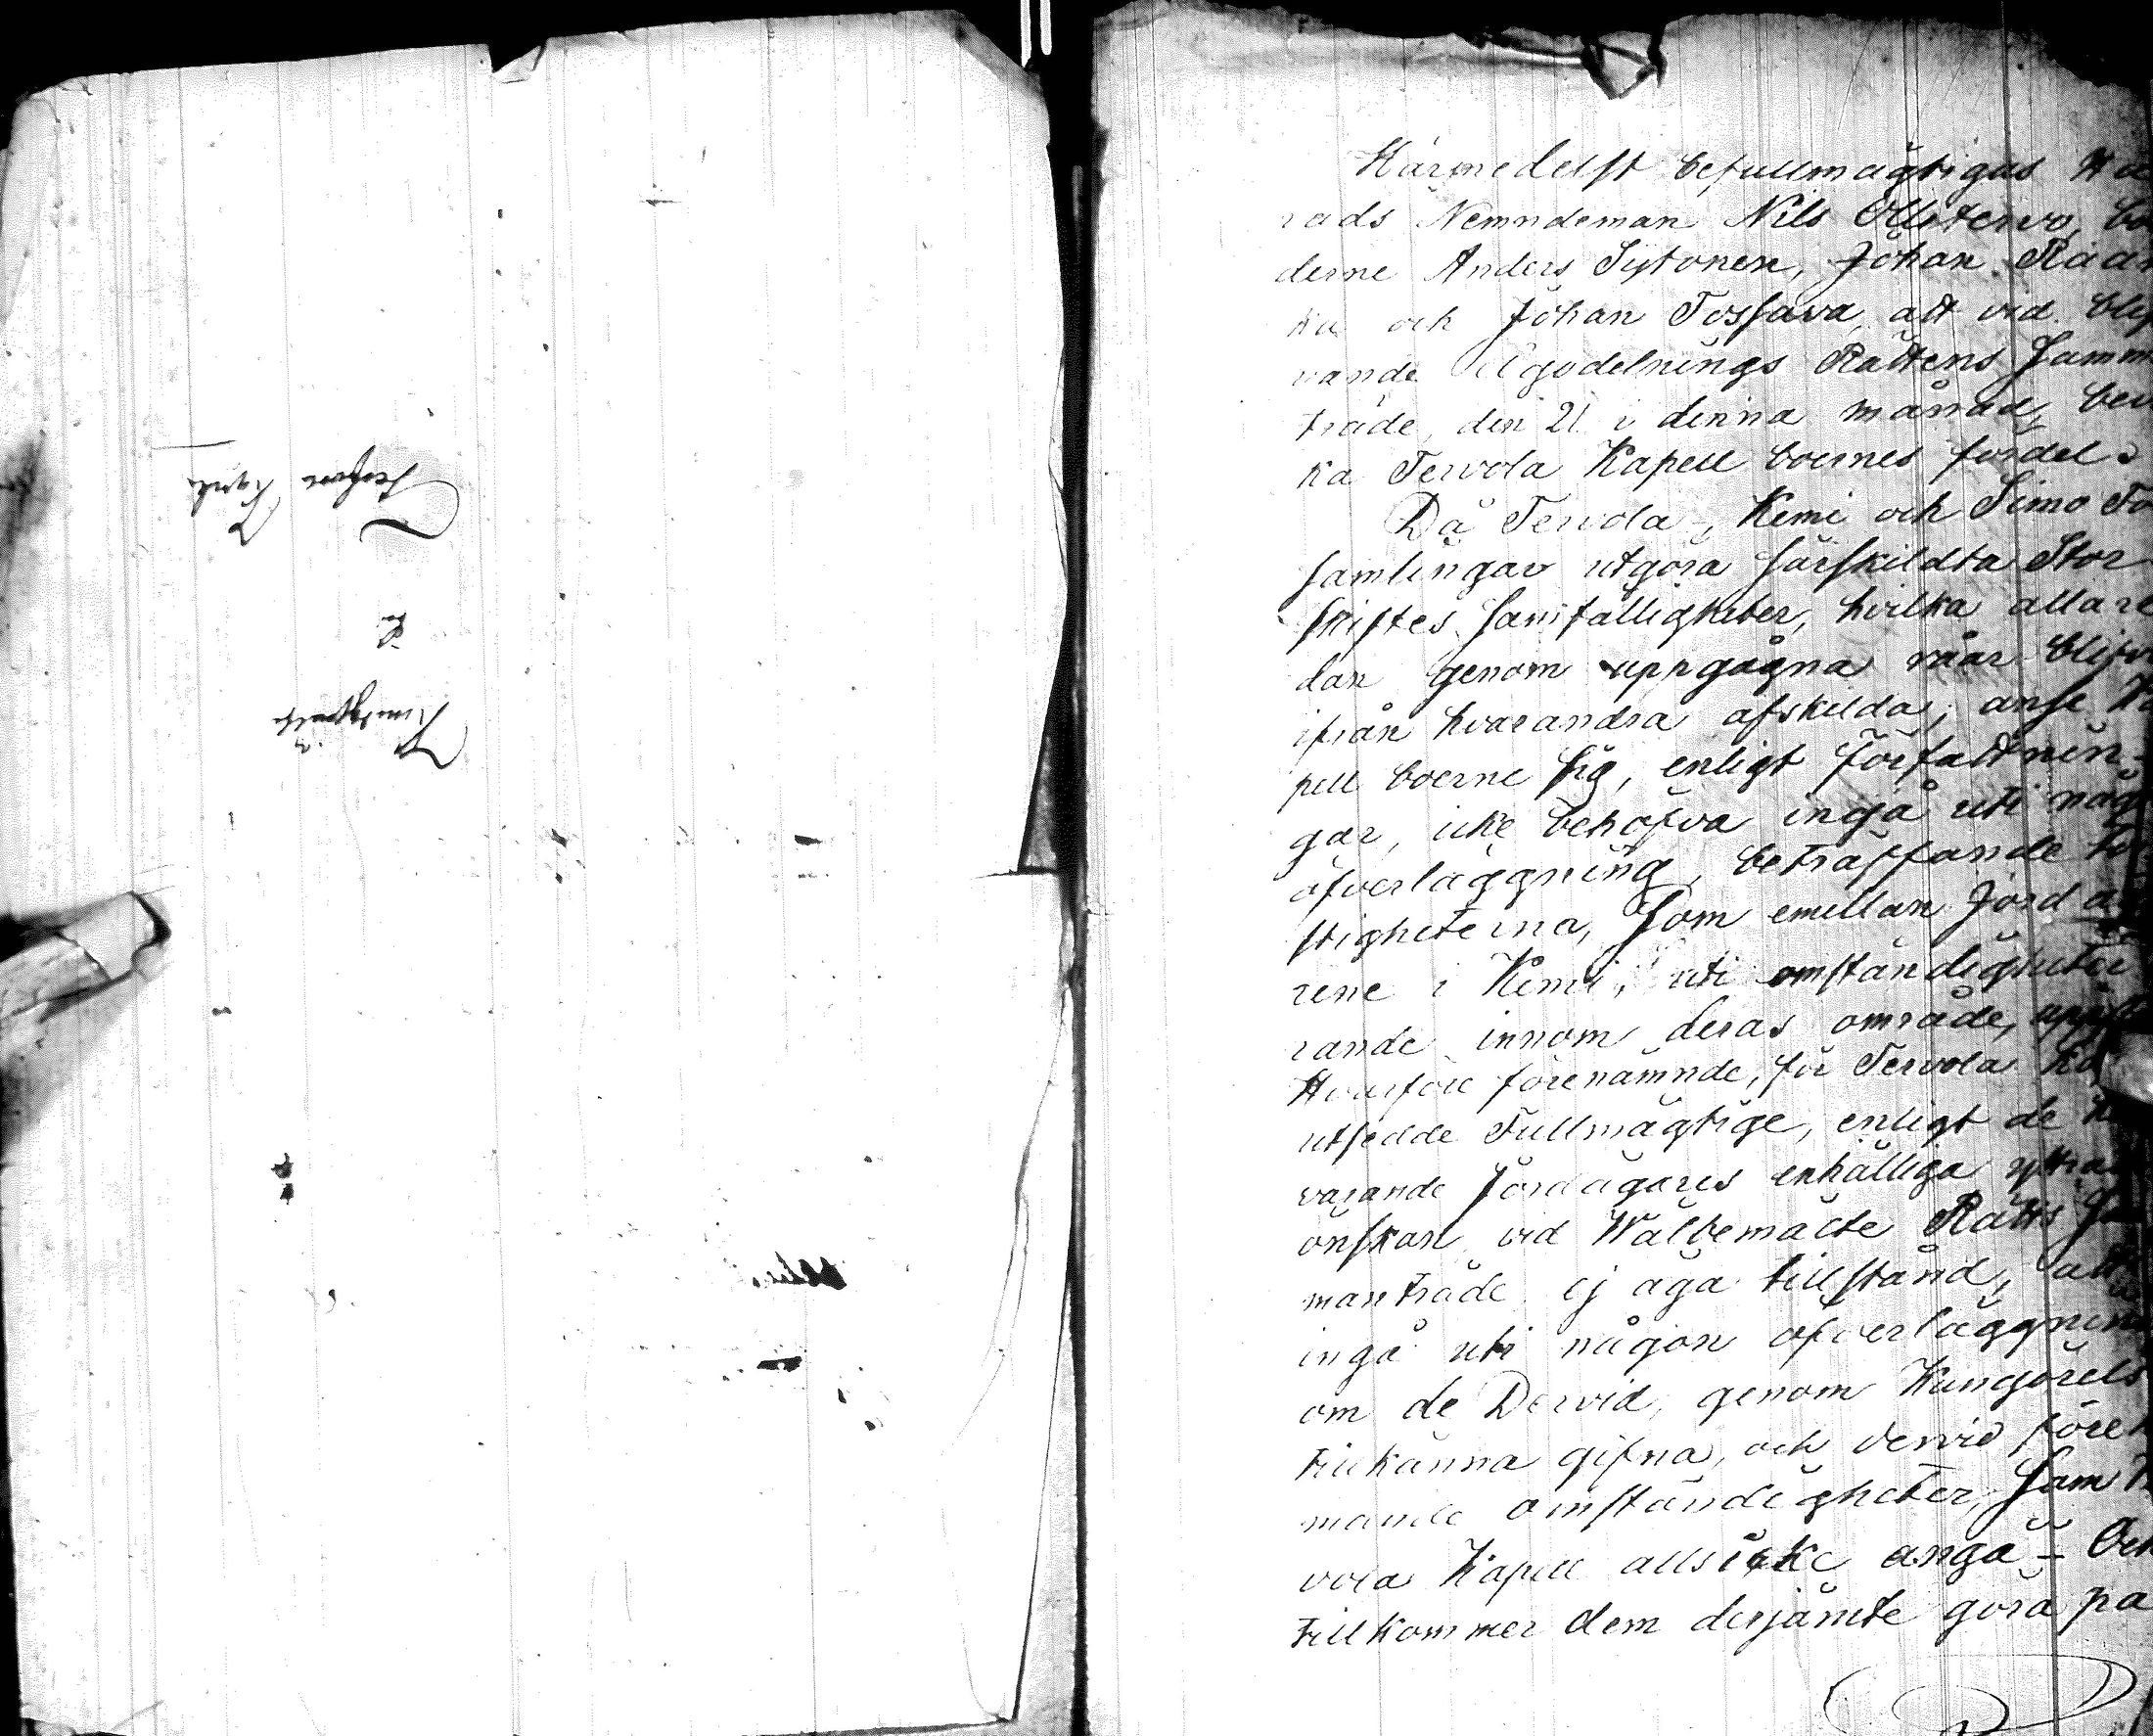 Härmedelst befullmägtigas Hä
rads Nemndeman Nils Ollitervo, bö
derne Anders Sÿtonen, Johan Raan
ka och Johan Tossava, att vid blif
vande Ägodelnings Rättens Samm
träde, den 21 i denna månad, bev
ka Tervola Kapell boernes fördel.
Då Tervola, Kemi och Simo Fö
samlingar utgöra särskildta Stor
skiftes samfälligheter, hvilka allare
dan genom uppgågna råar blifv
ifrån hvarandra afskilda; anse Ka
pell boerne sig, enligt Författnin-
gar, icke behöfva ingå uti någ
öfverläggning, beträffande tvi
stigheterna, som emellan Jord äg
rene i Kemi, uti omständigheter
rande innom deras område, upp
Hvarföre förenämnde, för Tervola Ka
utsedde Fullmägtige, enligt de
varande Jordägares enhälliga yttra
önskan vid Wälbemälte Rätts Sam
manträde ej äga tillstånd, att
ingå uti någon öfverläggning
om de Dervid, genom Kungörels
tillkänna gifna, och dervid förek
mande omständigheter, som
vola Kapell alls icke angå - Och
tillkommer dem derjämte göra på